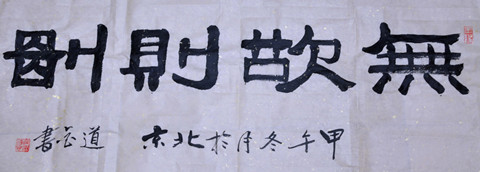 無欲則剛
甲午冬月於北京 道書